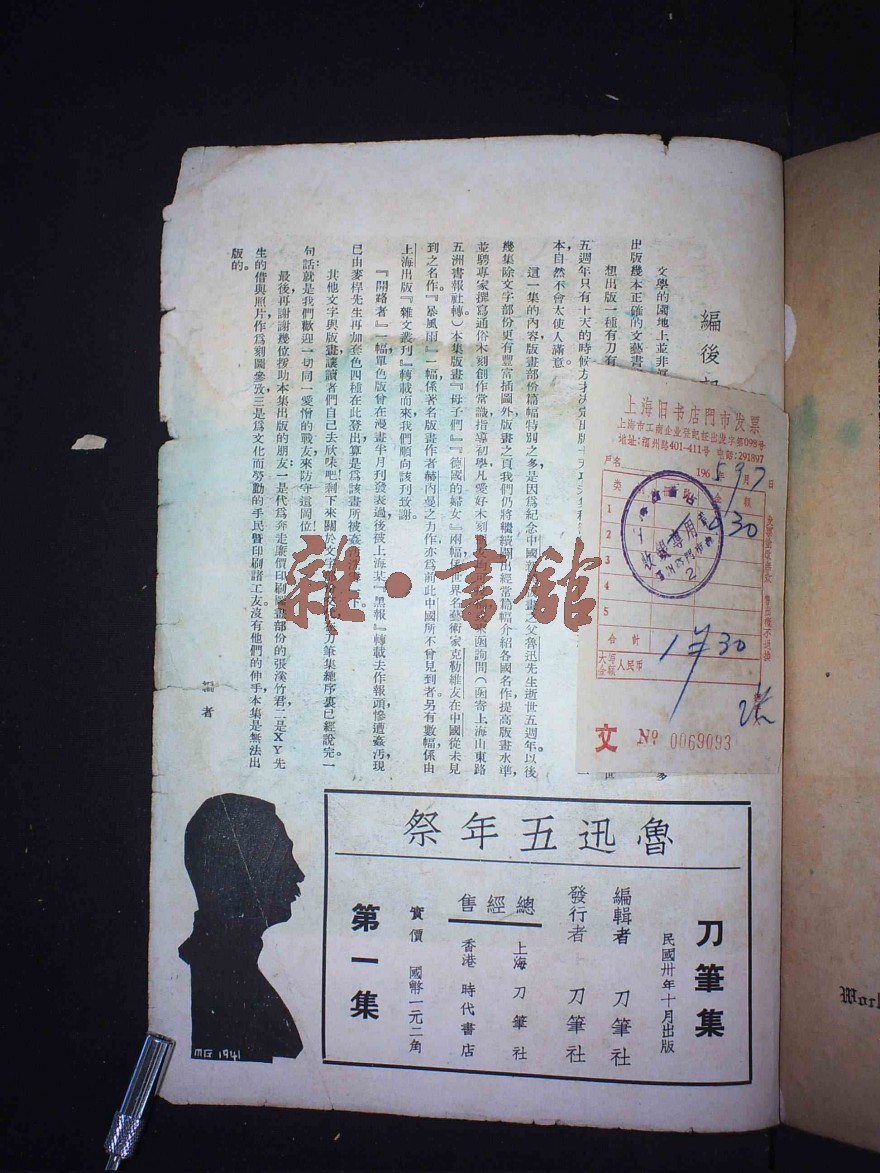 編後
文學的園地上並非
多
出版幾本正確的文藝書
世
想出版一種有刀有
五週年只有十天的時候方才決定出版
本，自然不會太使人滿意。
這一集的內容，版畫部份篇幅特別之多，是因爲紀念中國新
畫之父魯迅先生逝世五週年。以後
幾集除文字部份更有豐富插圖外，版畫之頁，我們仍將繼續闢出經常篇幅介紹各國名作，提高版畫水準，
並聘專家撰寫通俗木刻創作常識指導初學，凡愛好木刻
函詢問（函寄上海山東路
五洲書報社轉）本集版畫『母子們』『德國的婦女』兩幅係世界名藝術家克勒維友在中國從未見
到之名作。『暴風雨』一幅係著名版畫作者赫內曼之力作亦爲前此中國所不曾見到者。另有數幅，係由
上海出版『雜文叢刊』轉載而來，我們順向該刊致謝。
『開路者』一幅單色版曾在漫畫半月刊發表過後，被上海某『黑報』轉載去作報頭，慘遭姦汚，現
已由麥桿先生再加套色四種在此登出，算是爲該畫所被姦汚
下。
其他文字與版畫，讓讀者們自己去欣味吧！剩下來關於文字
刀筆集總序裏已經說完一
句話：就是我們歡迎一切同一愛憎的戰友，來防守這崗位！
最後再謝謝幾位援助本集出版的朋友：一是代爲奔走廉價印刷
畫部份的張溪竹君，二是XY先
生的借與照片，作爲刻圖參攷，三是爲文化而勞動的手民暨印刷諸工友，沒有他們的伸手，本集是無法出
版的。
者
上海旧书店門市发票
上海市工商企业登記証出洩字第098号
地址：福州路401—411号 电話：291897
戶名
1965年9月7日
类
額
1
2
3
4
5
030
收銀專用章
2
合計
1 030
大写金額 人民币
售出概不退換
文 Nº 0069093
雜·書館
魯迅五年祭
刀筆集
民國卅年十月出版
編輯者 刀筆社
發行者 刀筆社
總經售
上海 刀筆社
香港 時代書店
實價 國幣一元二角
第一集
MG 1941
Worl